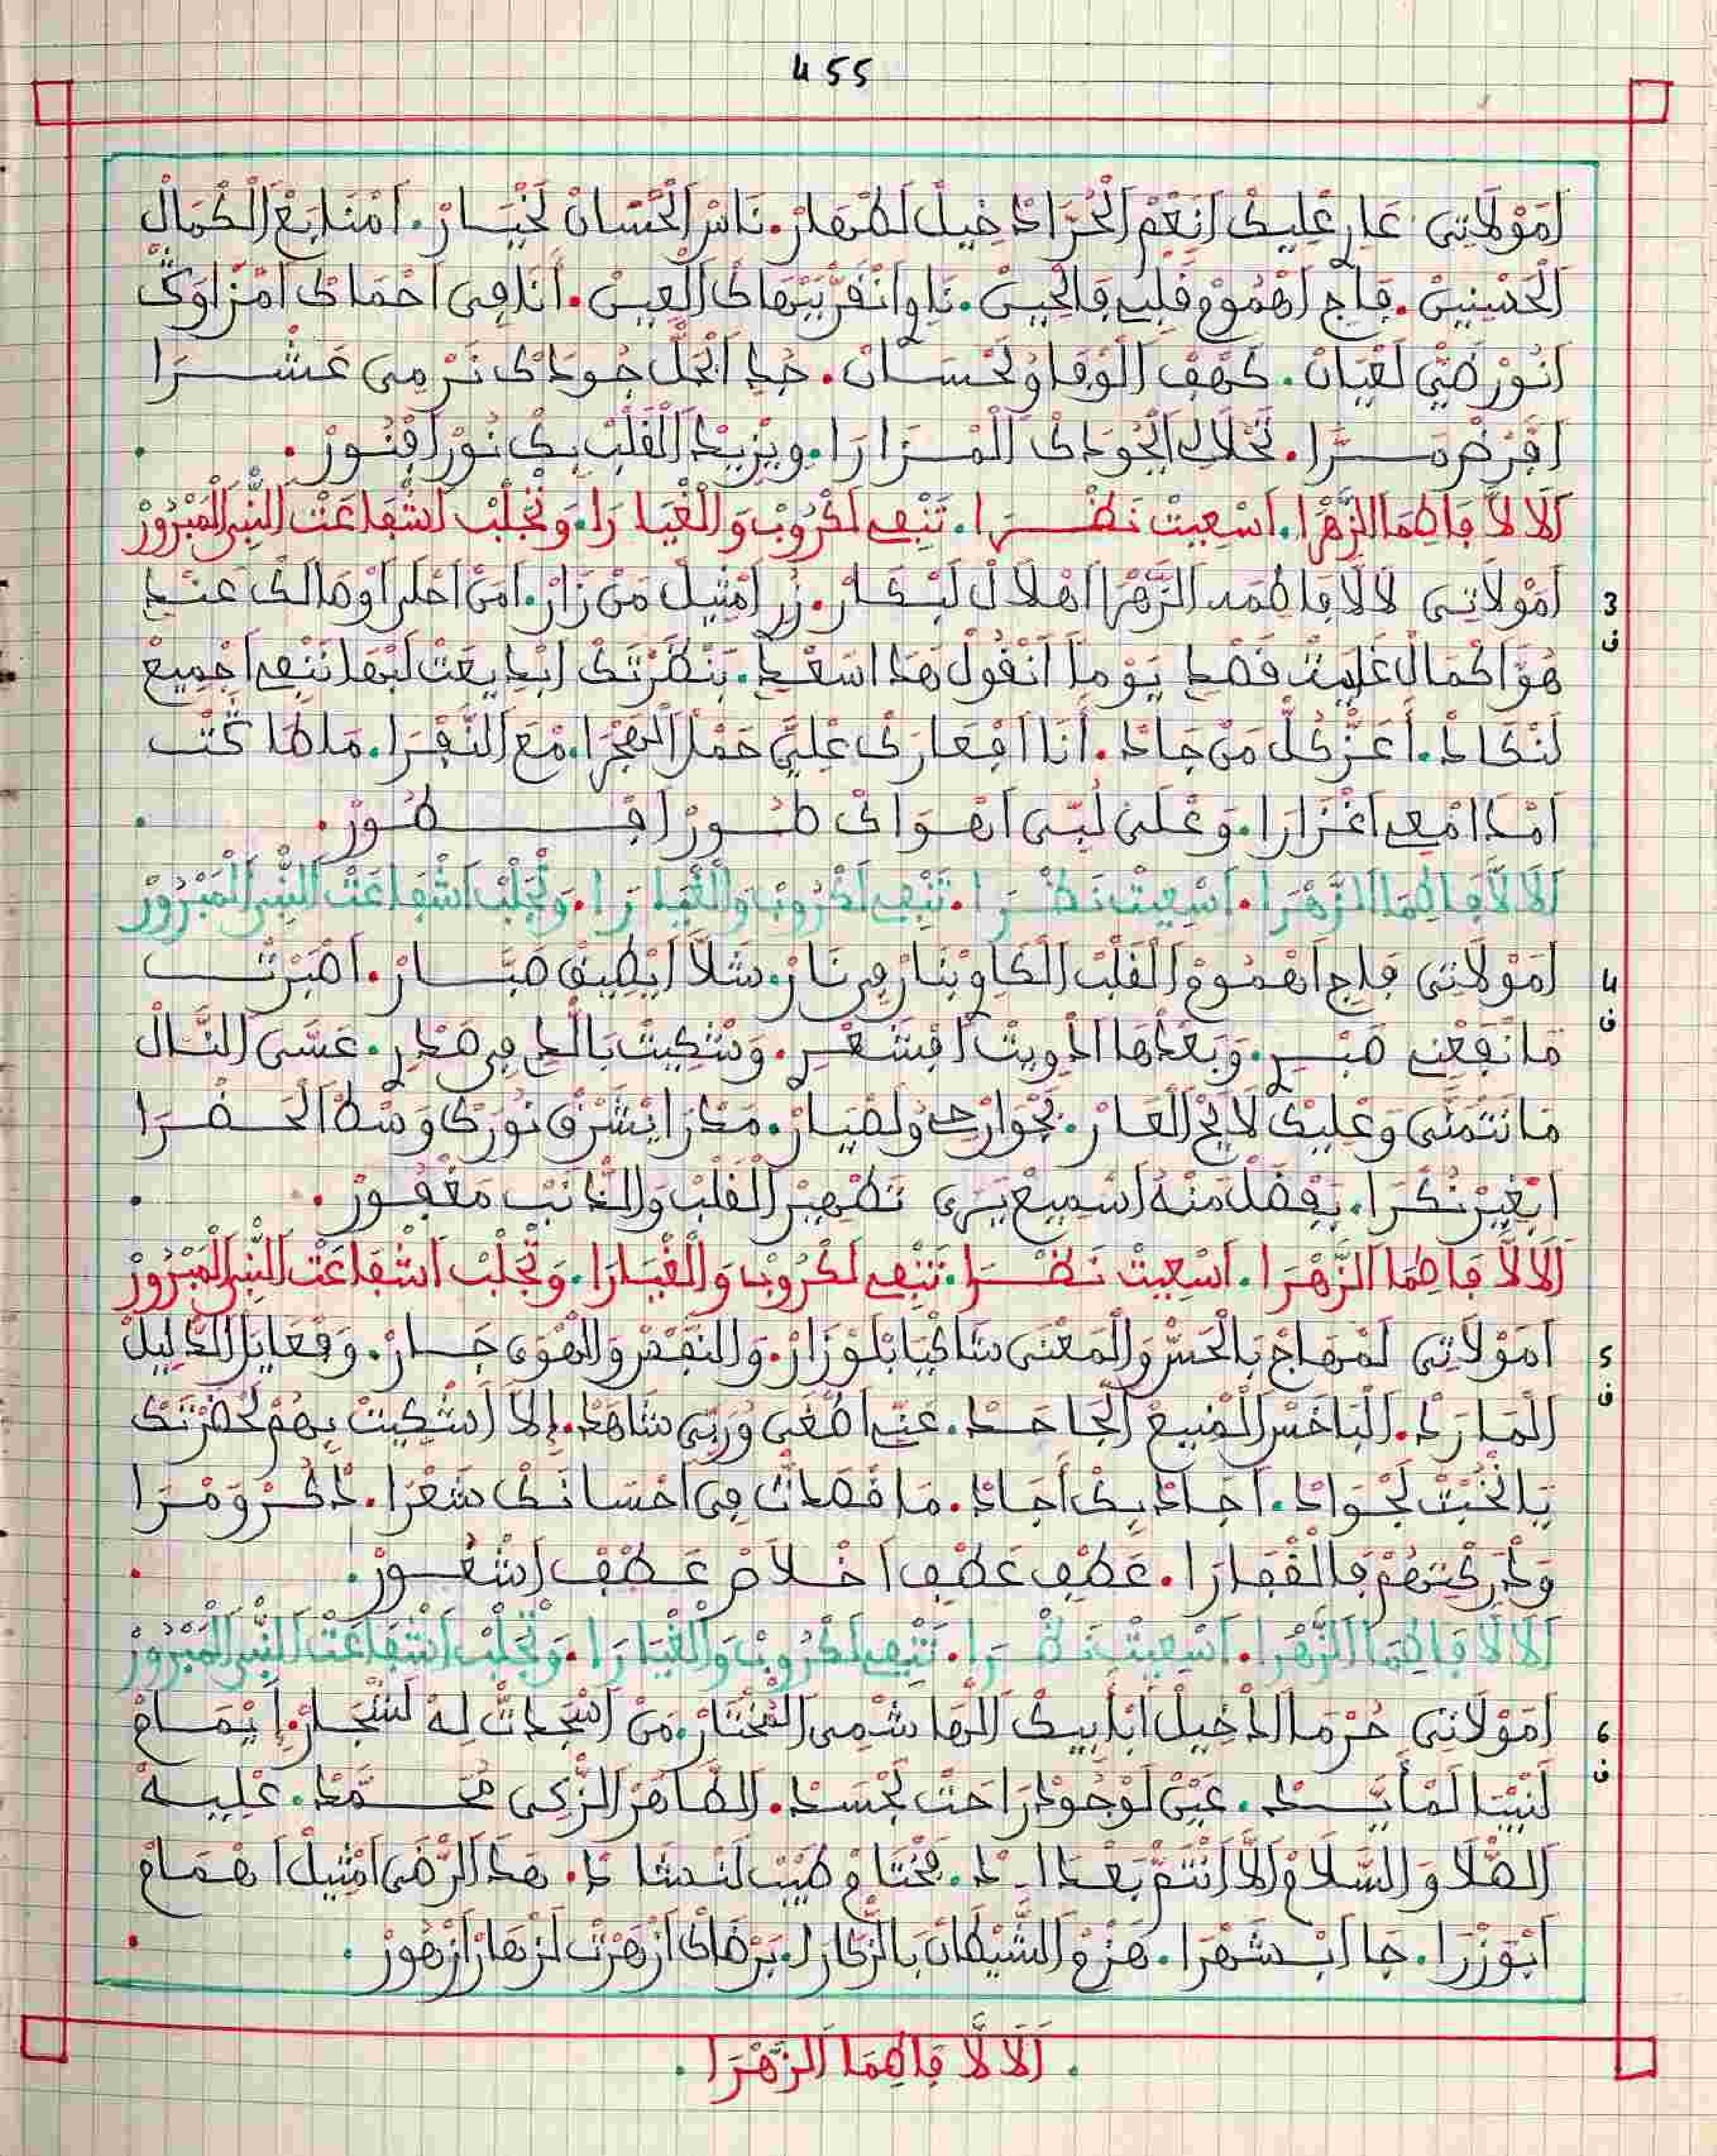 455
اَمُوْلَاتِي عَارْ عْلِيكْ اَنَعْمْ اَلْحُرَّا دْخِيلْ لَطْهَارْ. نَاسْ اَلْحْسَانْ لَخْيَارْ. اَمْنَابَعْ اَلْكْمَالْ
اَلْحَسْنِينْ. فَاجِي اَهْمُومْ قَلْبِي فَالْحِينْ. اَنَا فِي اَحْمَاكْ اَمْزَاوَكْ
اَنُورْ ضَيّْ لَعْيَانْ. كَهْفْ اَلْوْفَا وُلَحْسَانْ. جُودَكْ نَرْمِي عَشْرَا
اَفْرَضْ مَرَّا. اَلْمْزَارَا. وِيزِيدْ اَلْقَلْبْ بِكْ نُورْ اَفْنُورْ.
اَلَالَّا فَاطِمَا اَلزَّهْرَا. اَسْعِيتْ نَظْرَا. تَنْفِي لَكْرُوبْ وَالْغْيَارَا. وَتْجْلَبْ اَشْفَاعَتْ اَلنّْبِي اَلْمَبْرُورْ
3
اَمُوْلَاتِي لَالَّا فَاطْمَه اَلزَّهْرَا اَهْلَالْ لَبْكَارْ. زُرِ اَمْثِيلْ مَنْ زَارْ. اَمَنْ اَحْلَى اَوْصَالَكْ عَنْدِي
ف
هُوَّ اَكْمَالْ غَايْتْ قَصْدِي يَوْمًا اَنْقُولْ هَذَا سَعْدِي. بَنْظَرْتَكْ اَبْدِيعَتْ لَبْهَا نَنْفِي اَجْمِيعْ
لَنْكَادْ. أَعَزّْ كُلّْ مَنْ جَادْ. أَنَا اَفْعَارَكْ عْلِيَّ حَمْلْ اَلْهَجْرَا. مْعَ اَلنَّفْرَا. مَاطَا كَتْبْ
اَمْدَامْعِي اَغْزَارَا. وَعْلَى لُبِّي اَهْوَاكْ طُورْ اَفْطُورْ.
اَلَالَّا فَاطِمَا اَلزَّهْرَا. اَسْعِيتْ نَظْرَا. تَنْفِي لَكْرُوبْ وَالْغْيَارَا. وَتْجْلَبْ اَشْفَاعَتْ اَلنّْبِي اَلْمَبْرُورْ
4
اَمُوْلَاتِي فَاجِي اَهْمُومْ اَلْقَلْبْ اَلْكَاوِي بْنَارْ مِنْ نَارْ. شَلَّا اَيْطِيقْ صَبَّارْ. اَصْبَرْتْ
ف
مَا نَفَعْنِي صَبْرِي. وَبَعْدْهَا اَدْوِيتْ اَفْشَعْرِي. وَشْكِيتْ بَالّْدِي فِي صَدْرِي. عَسَى اَلنَّالْ
مَا نَتْمَنَّى وَعْلِيكْ لَايْحْ اَلْعَارْ. بَجْوَارْحِي وُلَضْيَارْ. مَدْرَا يَشْرَقْ نُورَكْ وَسْطْ اَلْحَضْرَا
اَبْغِيرْ نُكْرَا. بَفْضَلْ مَنْهُ اَسْمِيعْ يَبْرَى تَطْهِيرْ اَلْقَلْبْ وَالذَّانْبْ مَغْفُورْ.
اَلَالَّا فَاطِمَا اَلزَّهْرَا. اَسْعِيتْ نَظْرَا. تَنْفِي لَكْرُوبْ وَالْغْيَارَا. وَتْجْلَبْ اَشْفَاعَتْ اَلنّْبِي اَلْمَبْرُورْ
5
اَمُوْلَاتِي لَمْهَاجْ بَالْحَسّْ وَالْمَعْنَى شَاكْيَا بْلَوْزَارْ. وَالنَّفْسْ وَالْهْوَى جَارْ. وَفْعَايَلْ اَلذّْلِيلْ
ف
اَلْمَارَدْ. اَلْبَاخَسْ اَلْمْنِيعْ اَلْجَاحَدْ. عَنِّي اَطْغَى وُرَبِّي شَاهَدْ. إِلَا اَشْكِيتْ بِهُمْ لْحُضْرَتَكْ
يَا نُخْبَتْ لَجْوَادْ. اَجَادْ بِكْ أَجَادْ. مَا قْصَدْتْ فِي اَحْسَانَكْ شَعْرَا. ذُكْرْ وَمْرَا
وَدْرَكْتِهُمْ فَالْقْفَارَا. عَطْفِي عَطْفِي اَخْلَاصْ عَطْفْ اَشْعُورْ.
اَلَالَّا فَاطِمَا اَلزَّهْرَا. اَسْعِيتْ نَظْرَا. تَنْفِي لَكْرُوبْ وَالْغْيَارَا. وَتْجْلَبْ اَشْفَاعَتْ اَلنّْبِي اَلْمَبْرُورْ
6
اَمُوْلَاتِي حُرْمَا اَدْخِيلْ اَبَّابِيكْ اَلْهَاشْمِي اَلْمُخْتَارْ. مَنْ اَسْجْدَتْ لِهْ لَشْجَارْ. إِيْمَامْ
ف
لَنْبِيَا لَمْأَيَّدْ. عَيْنْ لَوْجُودْ رَاحَتْ لَجْسَدْ. اَلطَّاهَرْ اَلزّْكِي مُحَمَّدْ. عْلِيهْ
اَلصّْلَا وَالسَّلَامْ إِلَّا اَنْتَمّْ بَعْدَادْ. مُخْتَامْ طَيَّبْ لَنْشَادْ. هَذَا اَلرّْضَى اَمْثِيلْ اَهْمَامْ
اَبْوَزْرَا. جَا اَبْشَهْرَا. هْزَمْ اَلشَّيْطَانْ بَالزّْكَارَا. بَرْضَاكْ اَزْهَرْتْ لَزْهَارْ اَزْهُورْ.
. اَلَالَّا فَاطِمَا اَلزَّهْرَا .